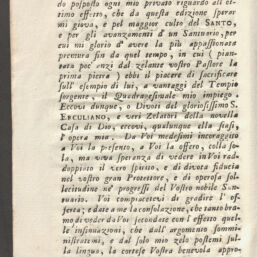 do posposto ogni mio privato riguardo all' ot-
timo effetto, che da questa edizione sperar
mi giova, e pel maggior culto del SANTO,
e per gli avanzamenti d' un Santuario, per
cui mi glorio d' avere la più appassionata
premura fin da quel tempo, in cui (pian-
tata poc' anzi dal zelante vostro Pastore la
prima pietra) ebbi il piacere di sacrificare
sull' esempio di lui, a vantaggi del Tempio
sorgente, il Quadragesimale mio impiego.
Eccovi dunque, o Divoti del gloriosissimo S.
ERCULIANO, e veri Zelatori della novella
Casa di Dio, eccovi, qualunque essa siasi,
l' opera mia. Da Voi medesimi incoraggito
a Voi la presento, a Voi la offero, colla so-
la, ma viva speranza di vedere in Voi rad-
doppiato il vero spirito, e di divota fiducia
nel vostro gran Protettore, e di operosa sol-
lecitudine ne' progressi del Vostro nobile San-
tuario. Voi compiacetevi di gradire l' of-
ferta; e date a me la consolazione, che tanto bra-
mo di veder da Voi secondate con l' effetto quel-
le insinuazioni, che dall' argomento sommi-
nistratemi, e dal solo mio zelo postemi sul-
la lingua, la cortese Vostra benevola appro-